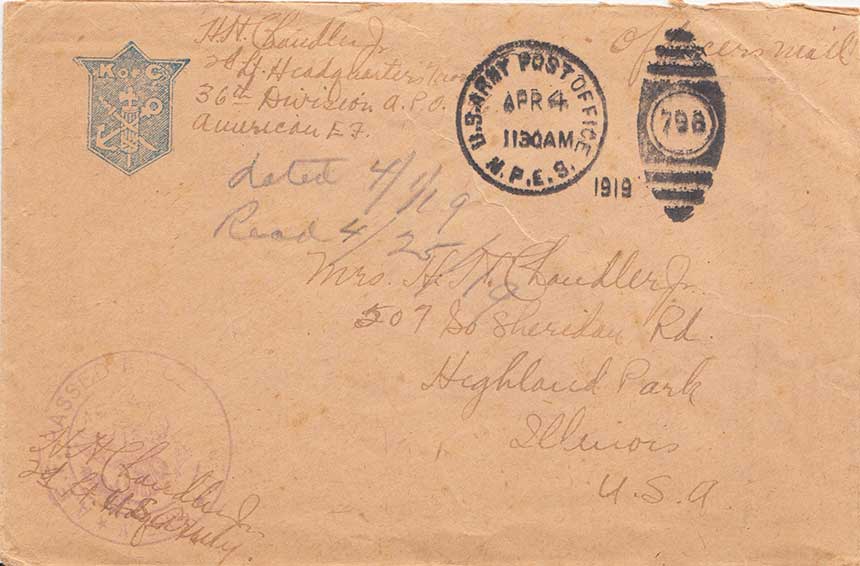 H. H. Chandler Jr.
2d Lt. Headquarters Troop
36th Division A.P.O.
American E.F.
Officers mail
K of C
U.S. ARMY POST OFFICE
APR 4
1130AM
M.P.E.S.
1919
798
dated 4/1/19
Recd 4/25/19
Mrs. H. H. Chandler Jr.
507 So Sheridan Rd.
Highland Park
Illinois
U.S.A
PASSED
H. H. Chandler Jr.
2d Lt. Army.